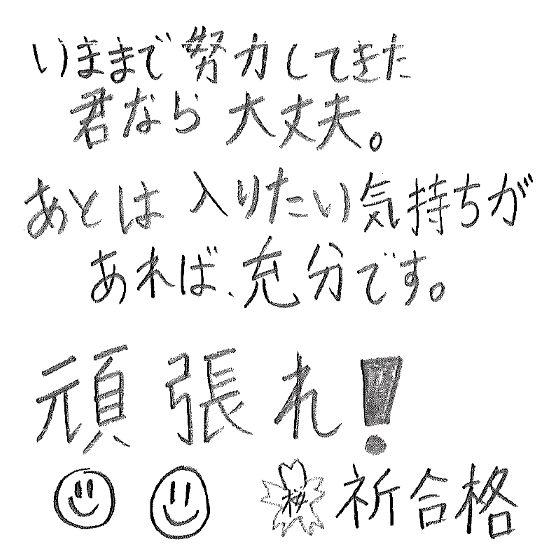 いままで努力してきた
君なら大丈夫。
あとは入りたい気持ちが
あれば、充分です。
頑張れ!
桜 祈合格